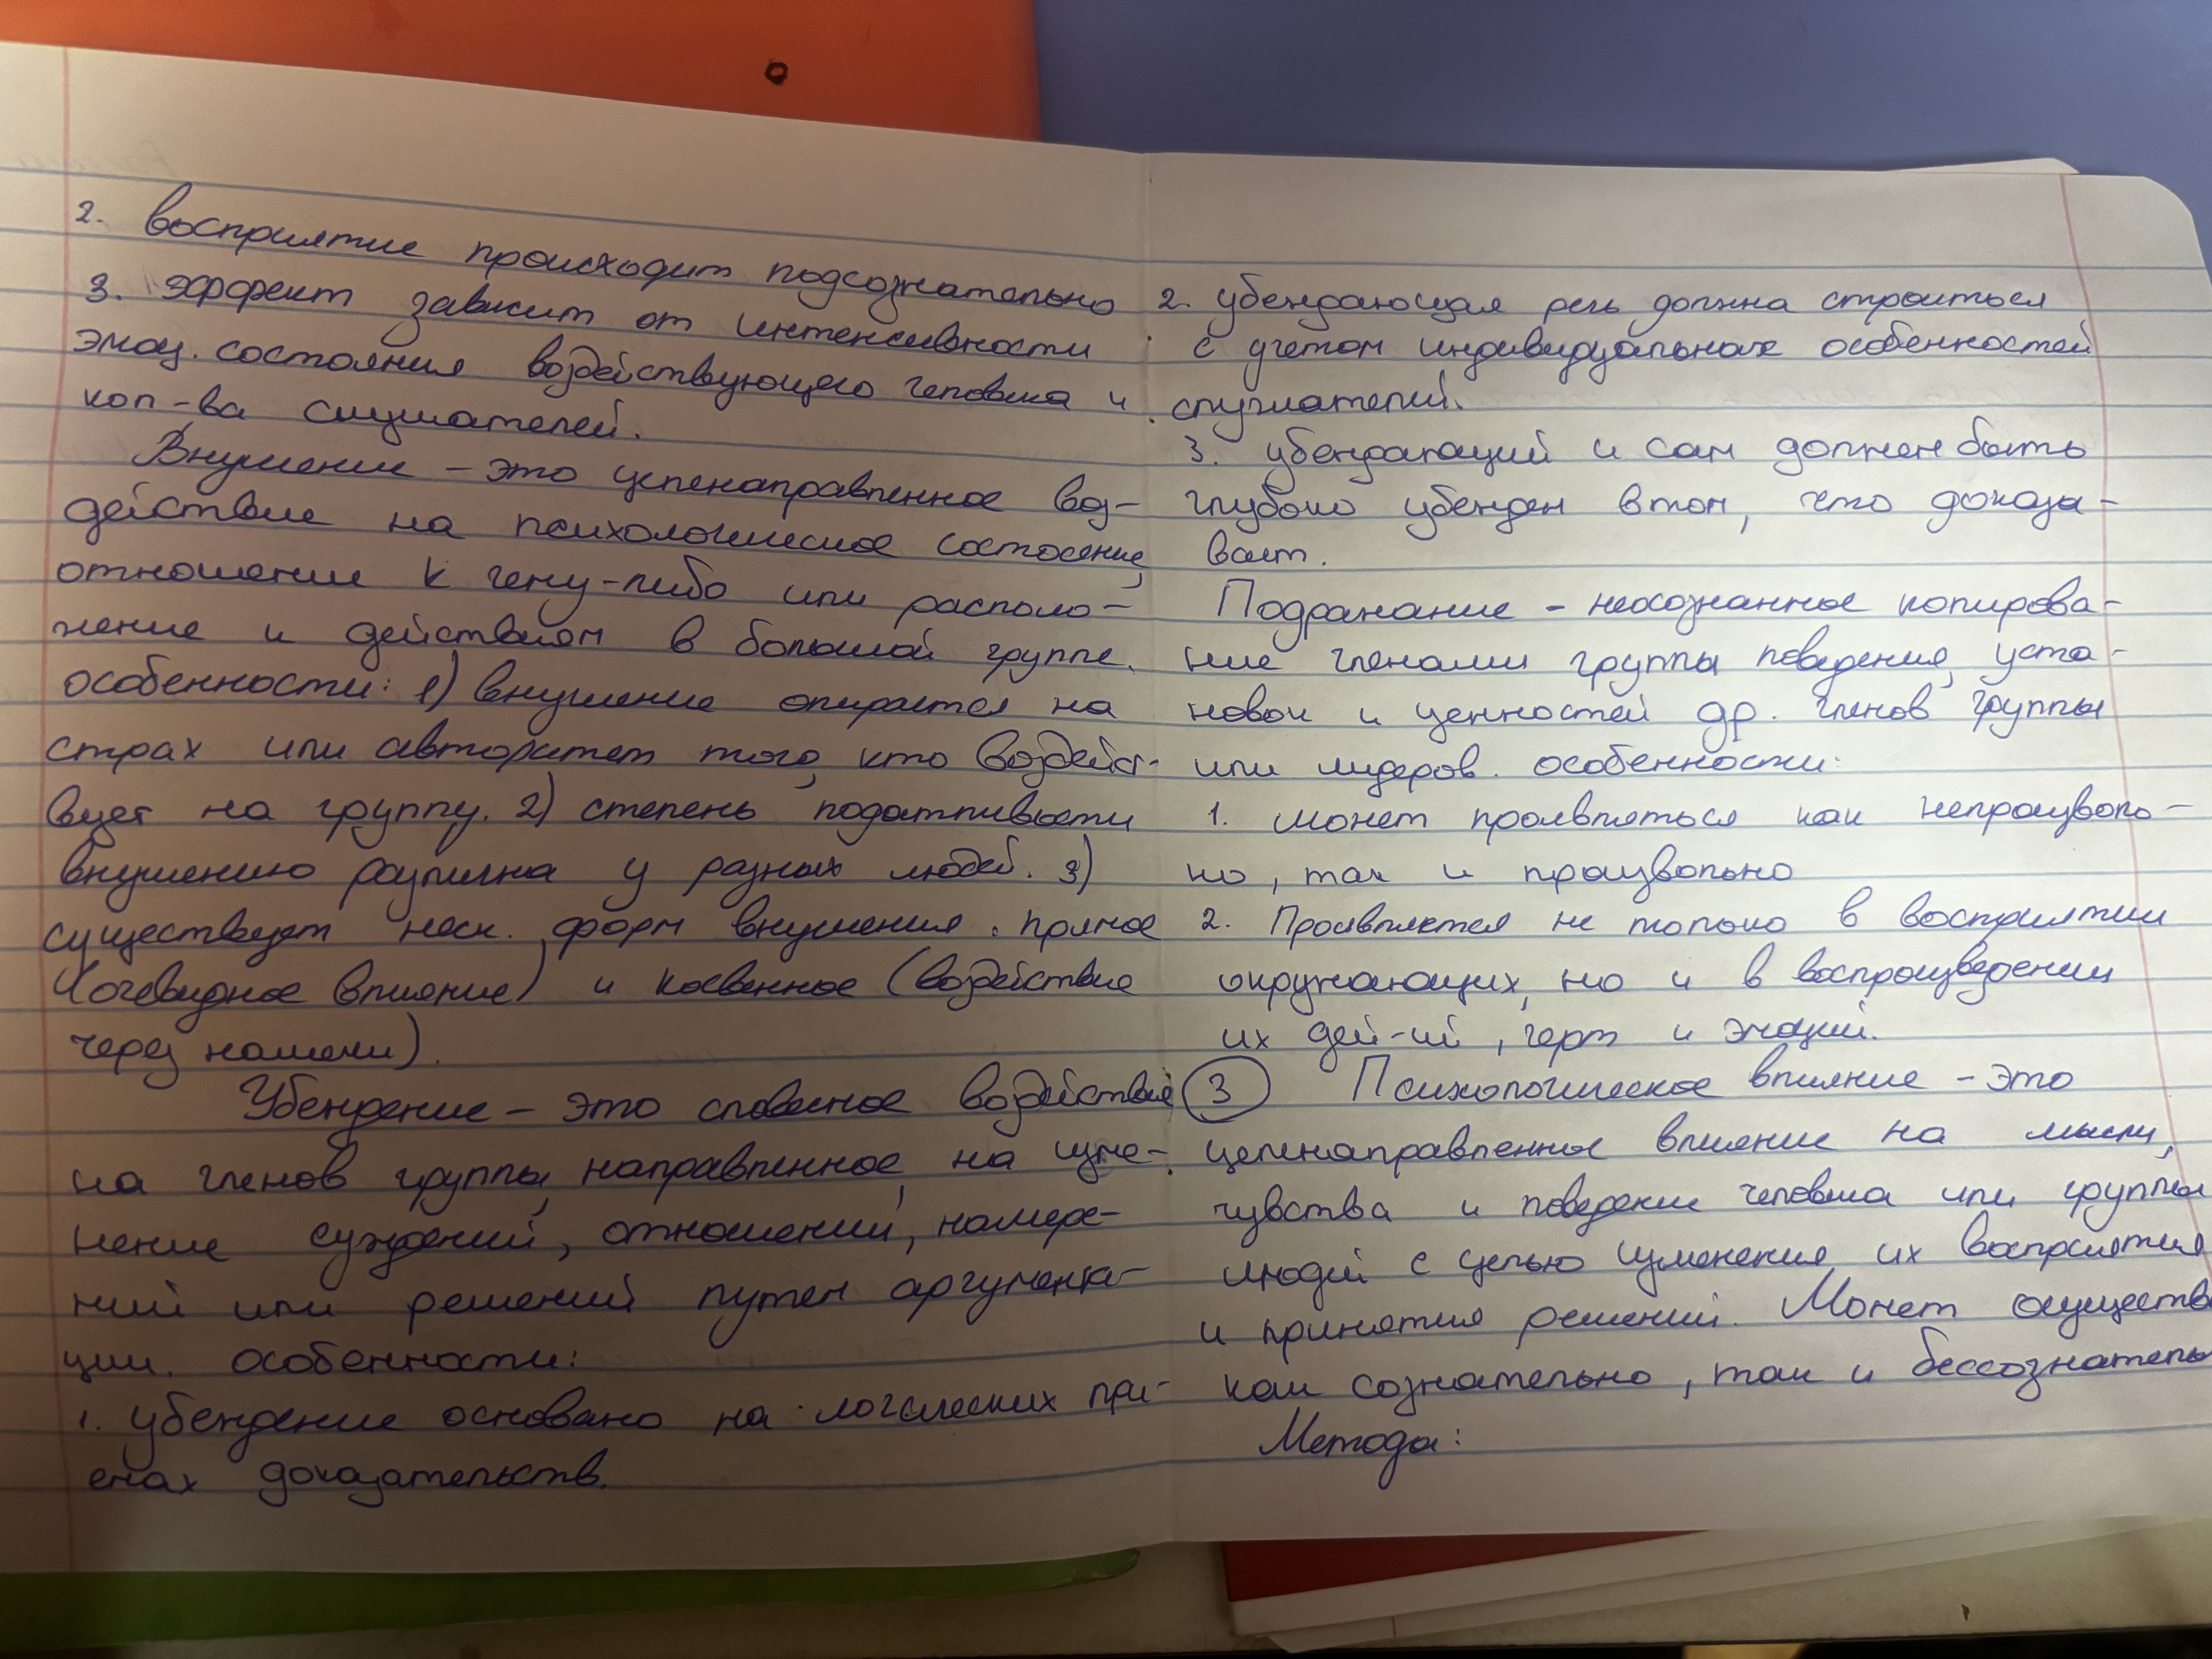 2. восприятие происходит подсознательно
3. эффект зависит от интенсивности
эмоц. состояния воздействующего человека и
кол-ва слушателей.
Внушение – это целенаправленное воз-
действие на психологическое состояние,
отношение к чему-либо или располо-
жение к действиям в большой группе.
особенности: 1) внушение опирается на
страх или авторитет того, кто воздейст-
вует на группу. 2) степень податливости
внушению различна у разных людей. 3)
существует неск. форм внушения: прямое
(очевидное влияние) и косвенное (воздействие
через намеки).
Убеждение – это словесное воздействие
на членов группы, направленное на изме-
нение суждений, отношений, намере-
ний или решений путем аргумента-
ции. особенности:
1. убеждение основано на логических при-
емах доказательств.
2. убеждающая речь должна строиться
с учетом индивидуальных особенностей
слушателей.
3. убеждающий и сам должен быть
глубоко убежден в том, что доказы-
вает.
Подражание – неосознанное копирова-
ние членами группы поведения, уста-
новок и ценностей др. членов группы
или лидеров. особенности:
1. может проявляться как непроизволь-
но, так и произвольно
2. Проявляется не только в восприятии
окружающих, но и в воспроизведении
их дей-ий, черт и эмоций.
3 Психологическое влияние – это
целенаправленное влияние на мысли,
чувства и поведение человека или группы
людей с целью изменения их восприятия
и принятия решений. Может осуществ
как сознательно, так и бессознатель
Методы: